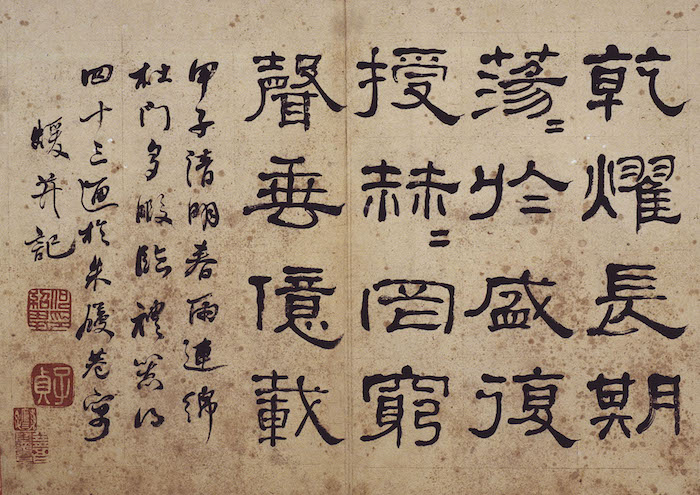 乾燿長期
蕩〻於盛復
授赫〻罔窮
聲垂億載
甲子清明春雨連綿
杜門多暇臨禮器得
四十三通於朱履巷寓
蝯并記
何紹基印
子貞